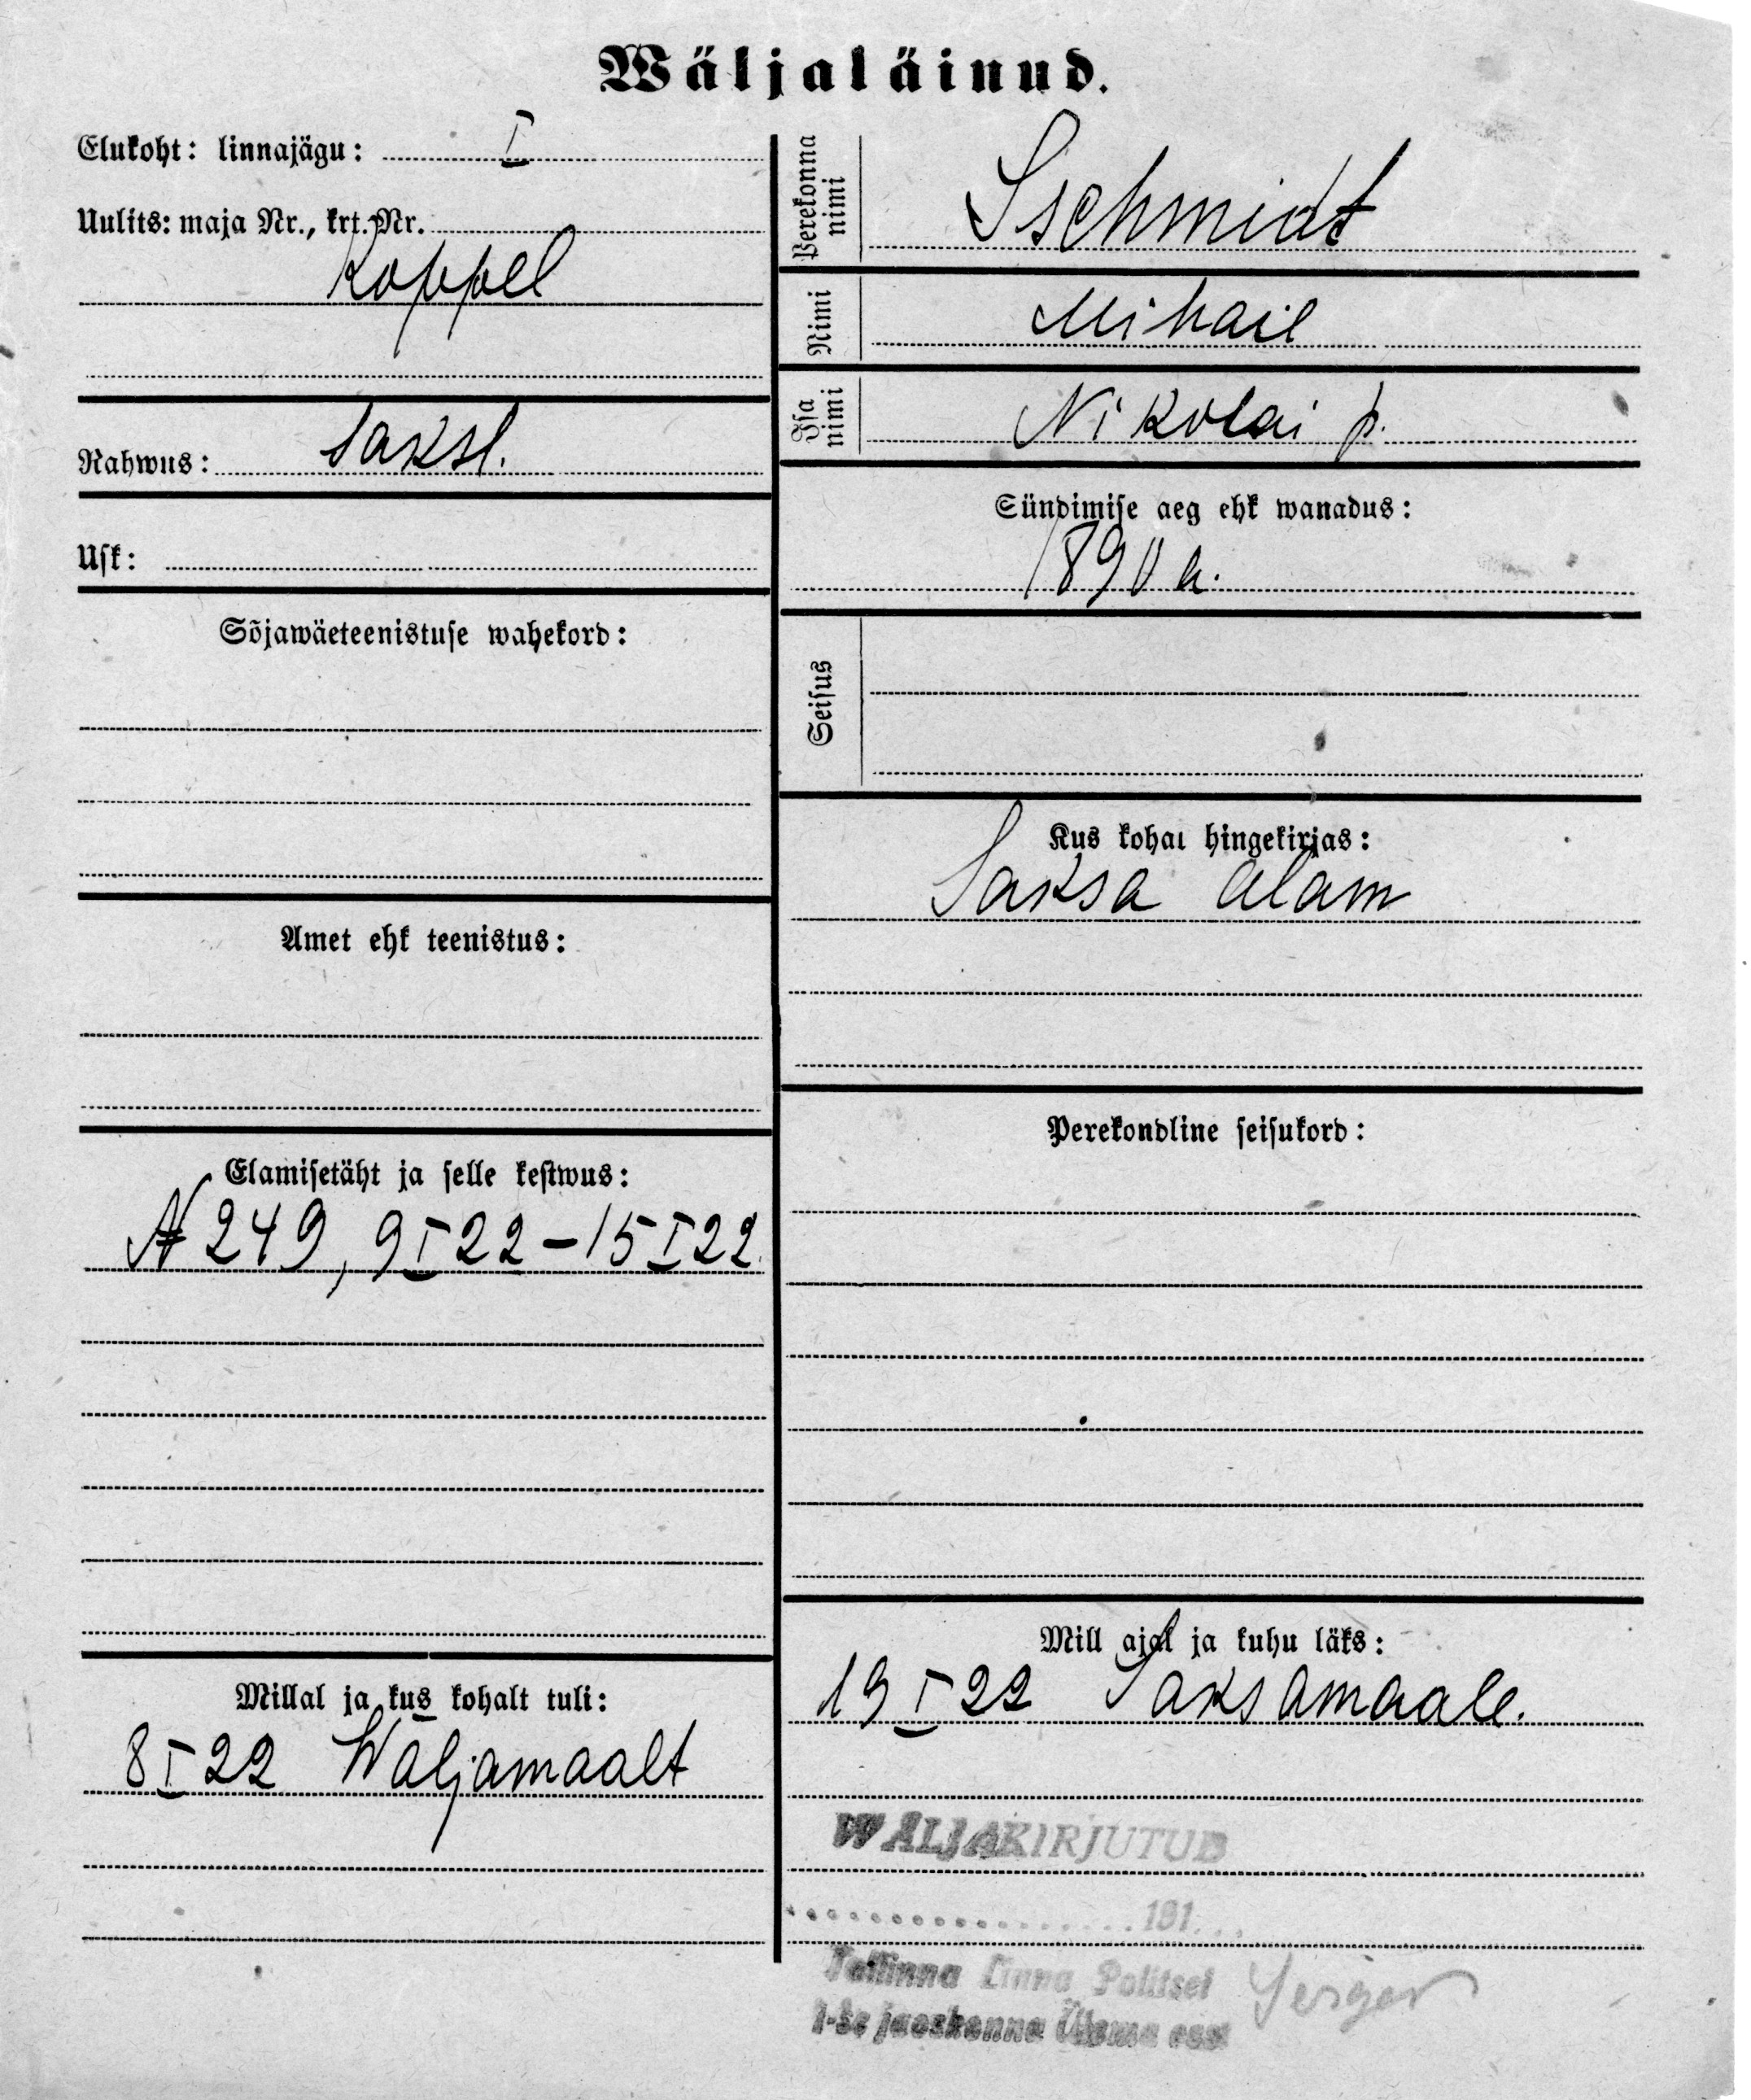 Wäljaläinud.
Elukoht: linnajägu: I
Uulits: maja Nr., krt. Nr.
Koppel
Rahwus: saksl.
Usk:
Sõjawäeteenistuse wahekord:
Amet ehk teenistus:
Elamisetäht ja selle kestwus:
№ 249, 9 I 22 – 15 I 22.
Millal ja kus kohalt tuli:
8 I 22 Waljamaalt
Perekonna nimi
Sschmidt
Nimi
Mihail
Isa nimi
Nikolai p.
Sündimise aeg ehk wanadus:
1890 a.
Seisus
Kus kohal hingekirjas:
Saksa alam
Perekondline seisukord:
Mill ajal ja kuhu läks:
19 I 22 Saksamaale.
WÄLJAKIRJUTUD
191...
Tallinna Linna Politsei
1-se jaoskonna Ülema eest